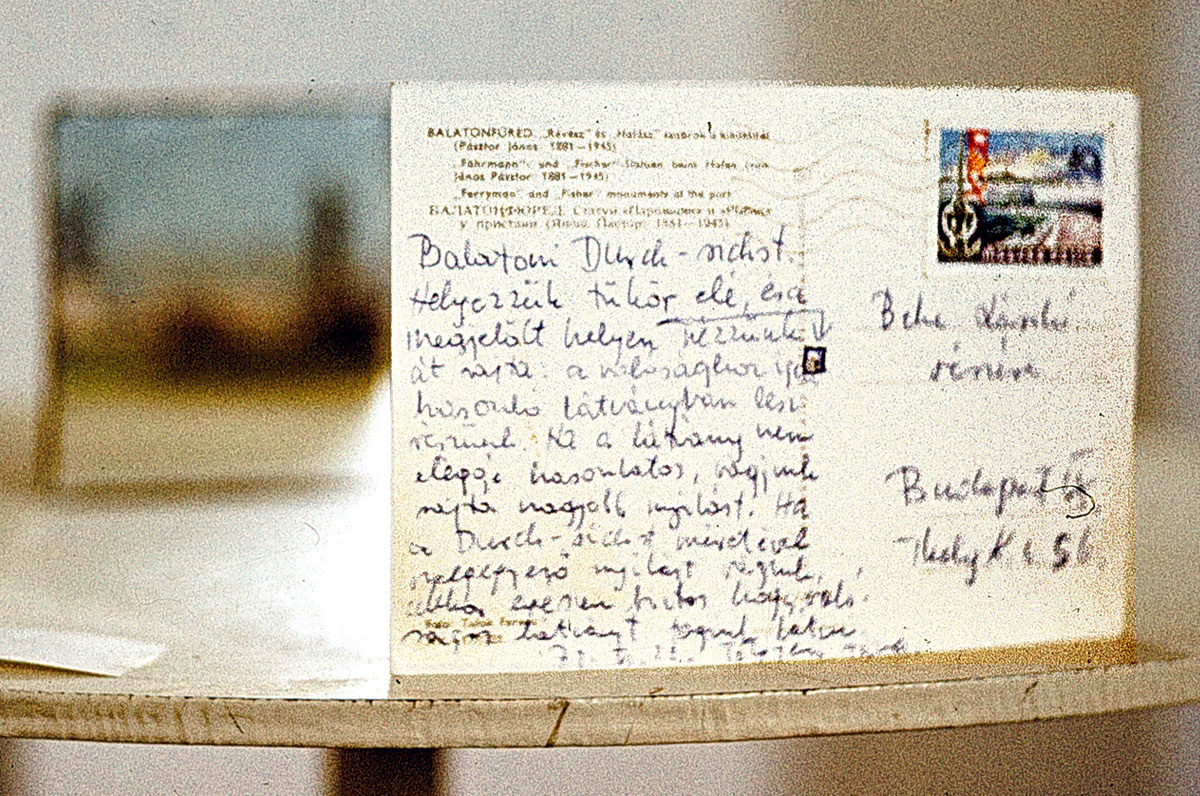 BALATONFÜRED. „Révész" és „Halász" szobrok a kikötőnél
(Pásztor János 1881—1945)
„Fährmann" und „Fischer"-Statuen beim Hafen (von
János Pásztor 1881—1945)
„Ferryman" and „Fisher" monuments at the port
БАЛАТОНФЮРЕД. Статуи «Паромщик» и «Рыбак»
у пристани (Янош Пастор, 1881—1945)
Balatoni Durch-sichst.
Helyezzük tükör elé, és a
megjelölt helyen nézzünk
át rajta: a valósághoz igen
hasonló látványban lesz
részünk. Ha a látvány nem
eléggé hasonlatos, vágjunk
rajta nagyobb nyílást. Ha
a Durch-sichst méretével
megegyező nyílást vágunk,
akkor egészen biztos hogy való-
ságos látványt fogunk látni
Beke László
részére
Budapest
Thaly K. u. 56.
Foto: Takács Ferenc